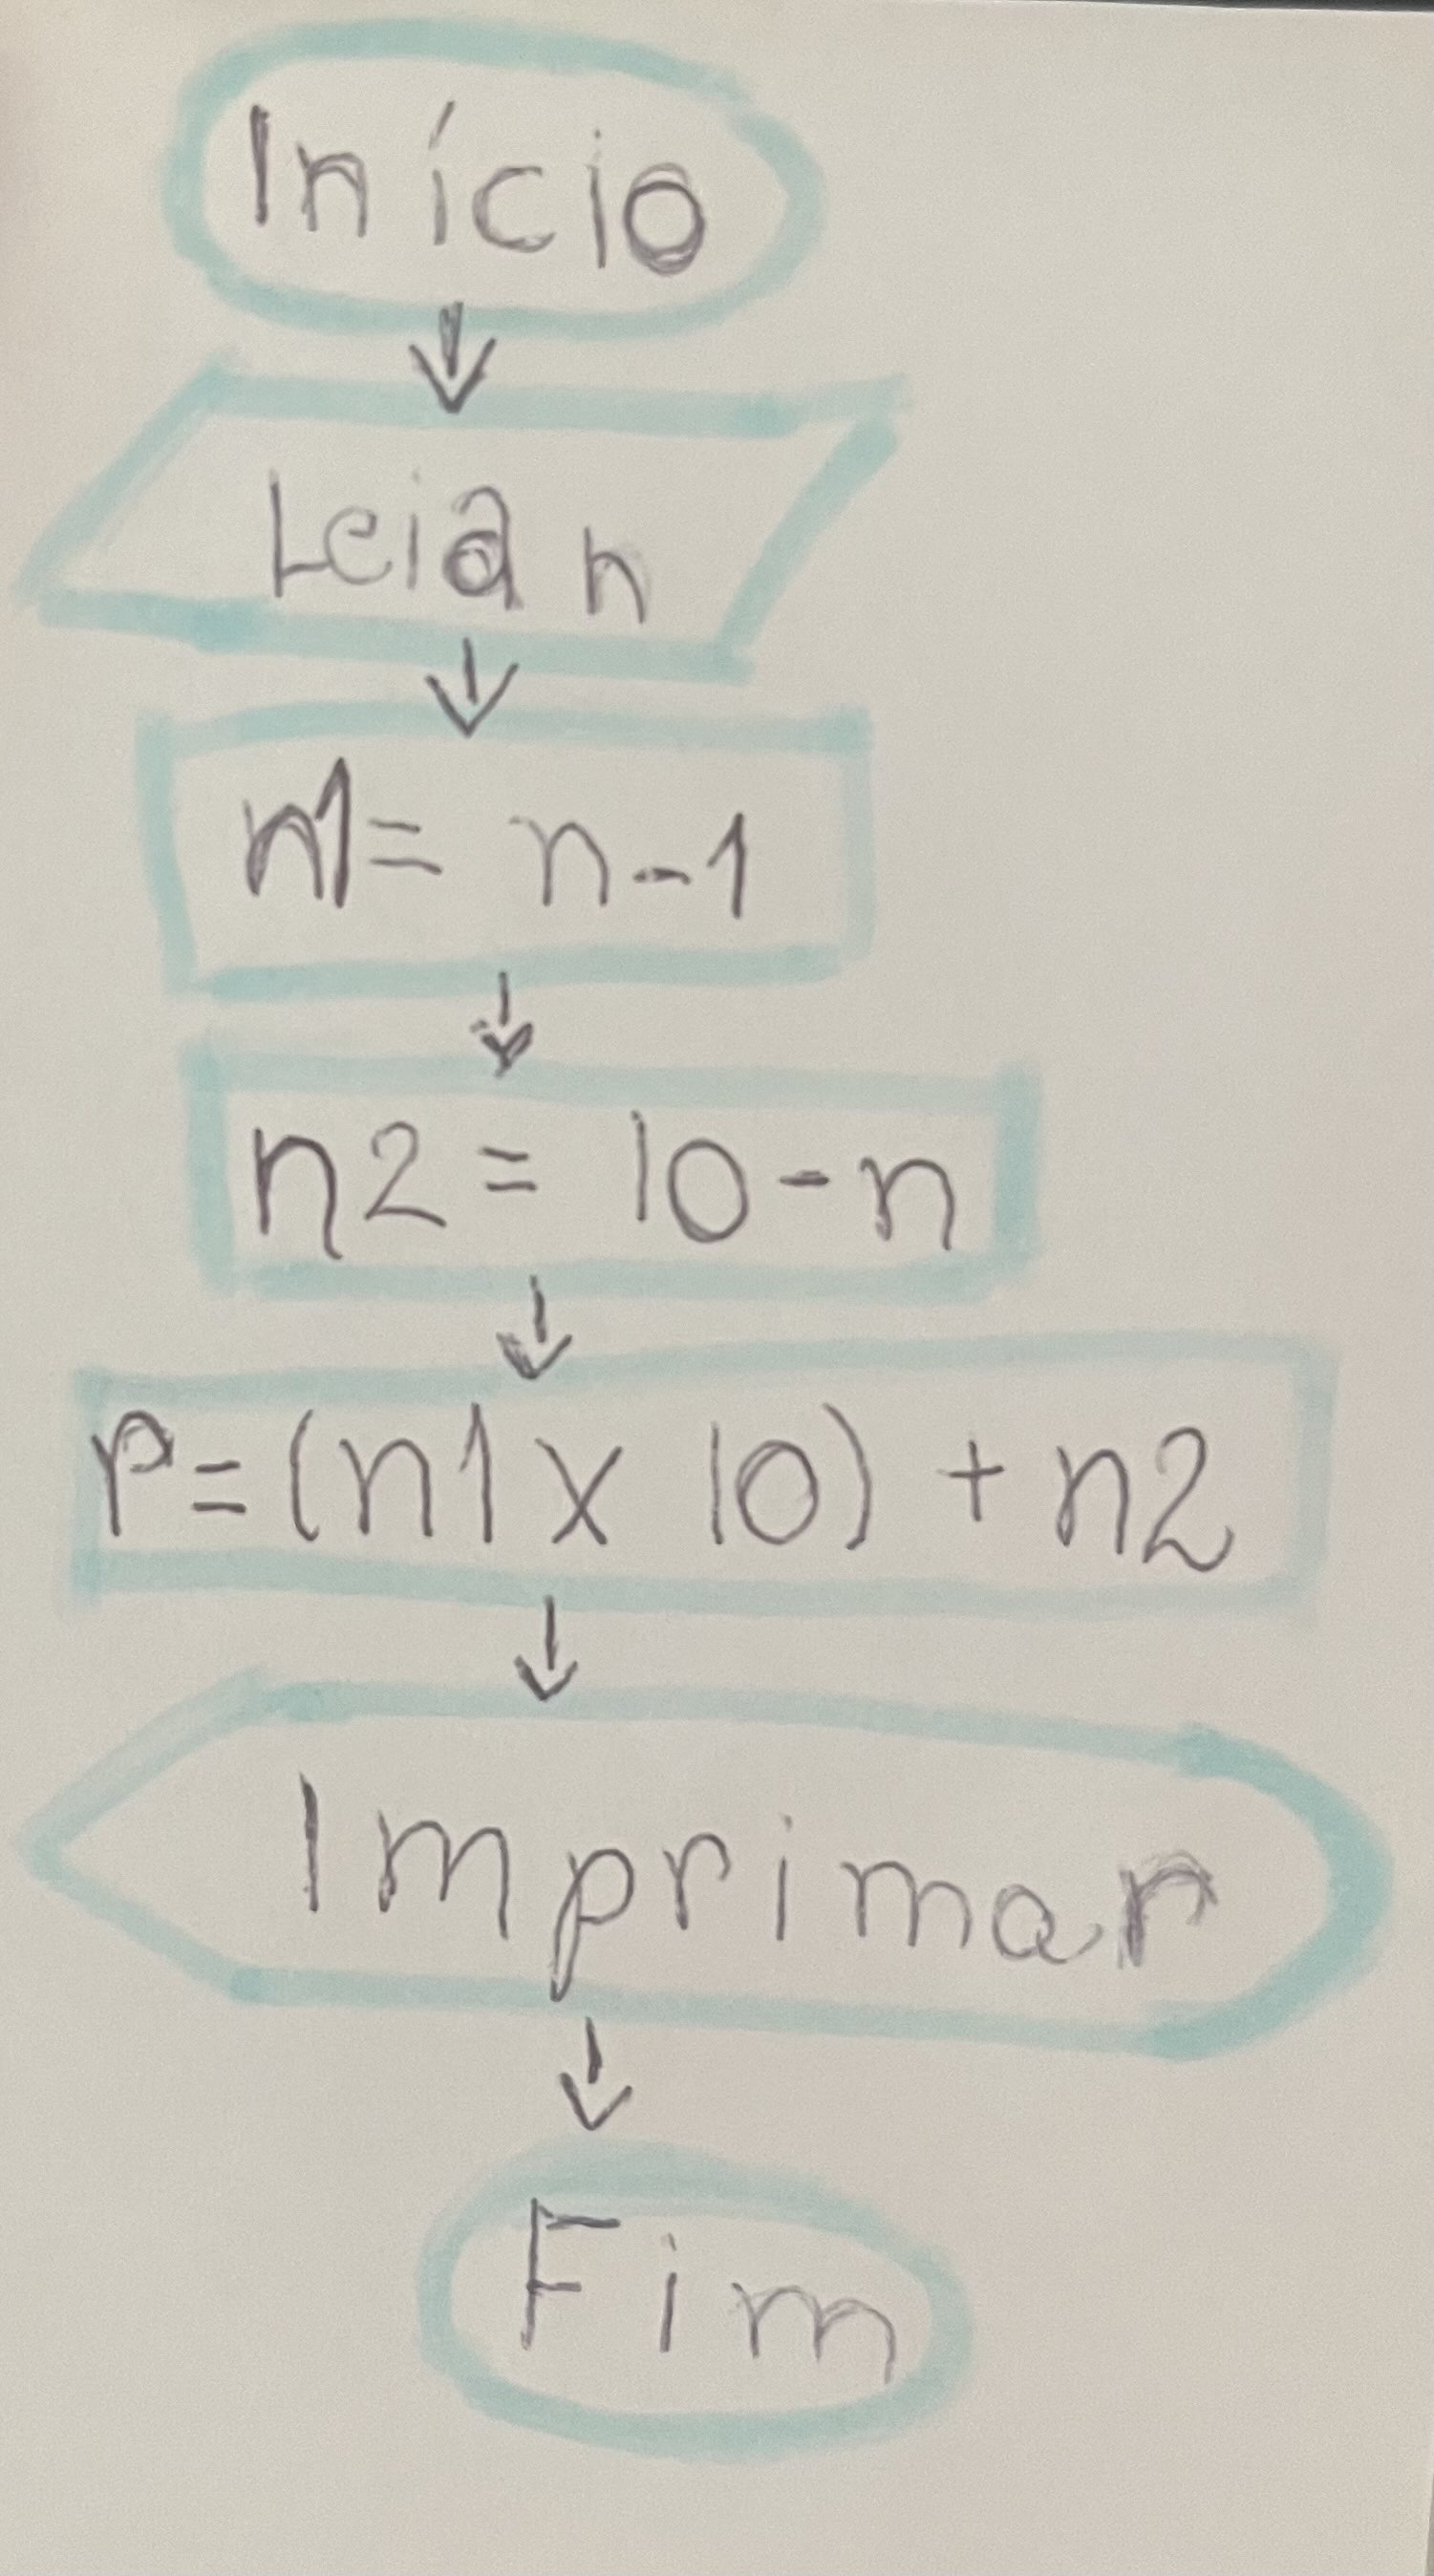 Início
Leia n
n1= n-1
n2 = 10-n
r=(n1x 10) + n2
Imprimar
Fim